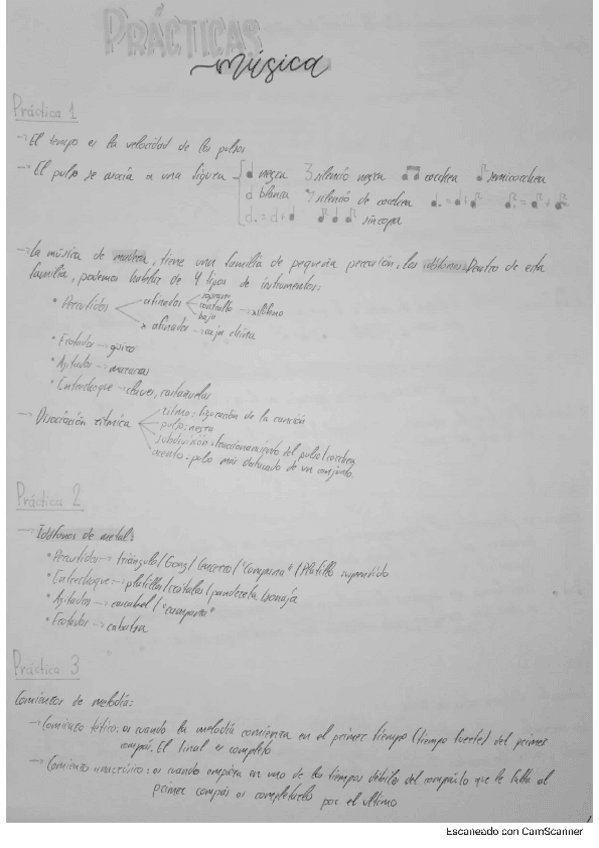 PRÁCTICAS
música
Práctica 1
→ El tempo es la velocidad de los pulsos
→ El pulso se asocia a una figura negra silencio negra corchea semicorchea
blanca silencio de corchea
síncopa
→ La música de madera, tiene una familia de pequeña percusión, los idiófonos. Dentro de esta
familia, podemos hablar de 4 tipos de instrumentos:
• Percutidos afinados soprano
contralto → xilófono
bajo
x afinador → caja china
• Frotados → güiro
• Agitados → maracas
• Entrechoque → claves, castañuelas
→ Disociación rítmica ritmo: figuración de la canción
pulso: negra
subdivisión: fraccionamiento del pulso/corchea
acento: pulso más destacado de un conjunto
Práctica 2
→ Idiófonos de metal:
• Percutidos → triángulo/Gong/Cencerro/"Campana"/Platillo suspendido
• Entrechoque → platillos/crótalos/pandereta/sonaja
• Agitados → cascabel/"campana"
• Frotados → cabatsa
Práctica 3
Comienzos de melodía:
→ Comienzo tético: es cuando la melodía comienza en el primer tiempo (tiempo fuerte) del primer
compás. El final es completo
→ Comienzo anacrúsico: es cuando empieza en uno de los tiempos débiles del compás lo que le falta al
primer compás es completarlo por el último
Escaneado con CamScanner